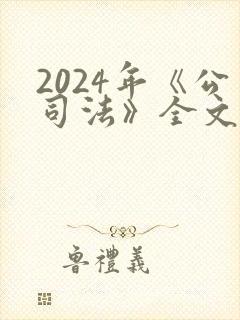 2024年《公
司法》全文
鲁禮義